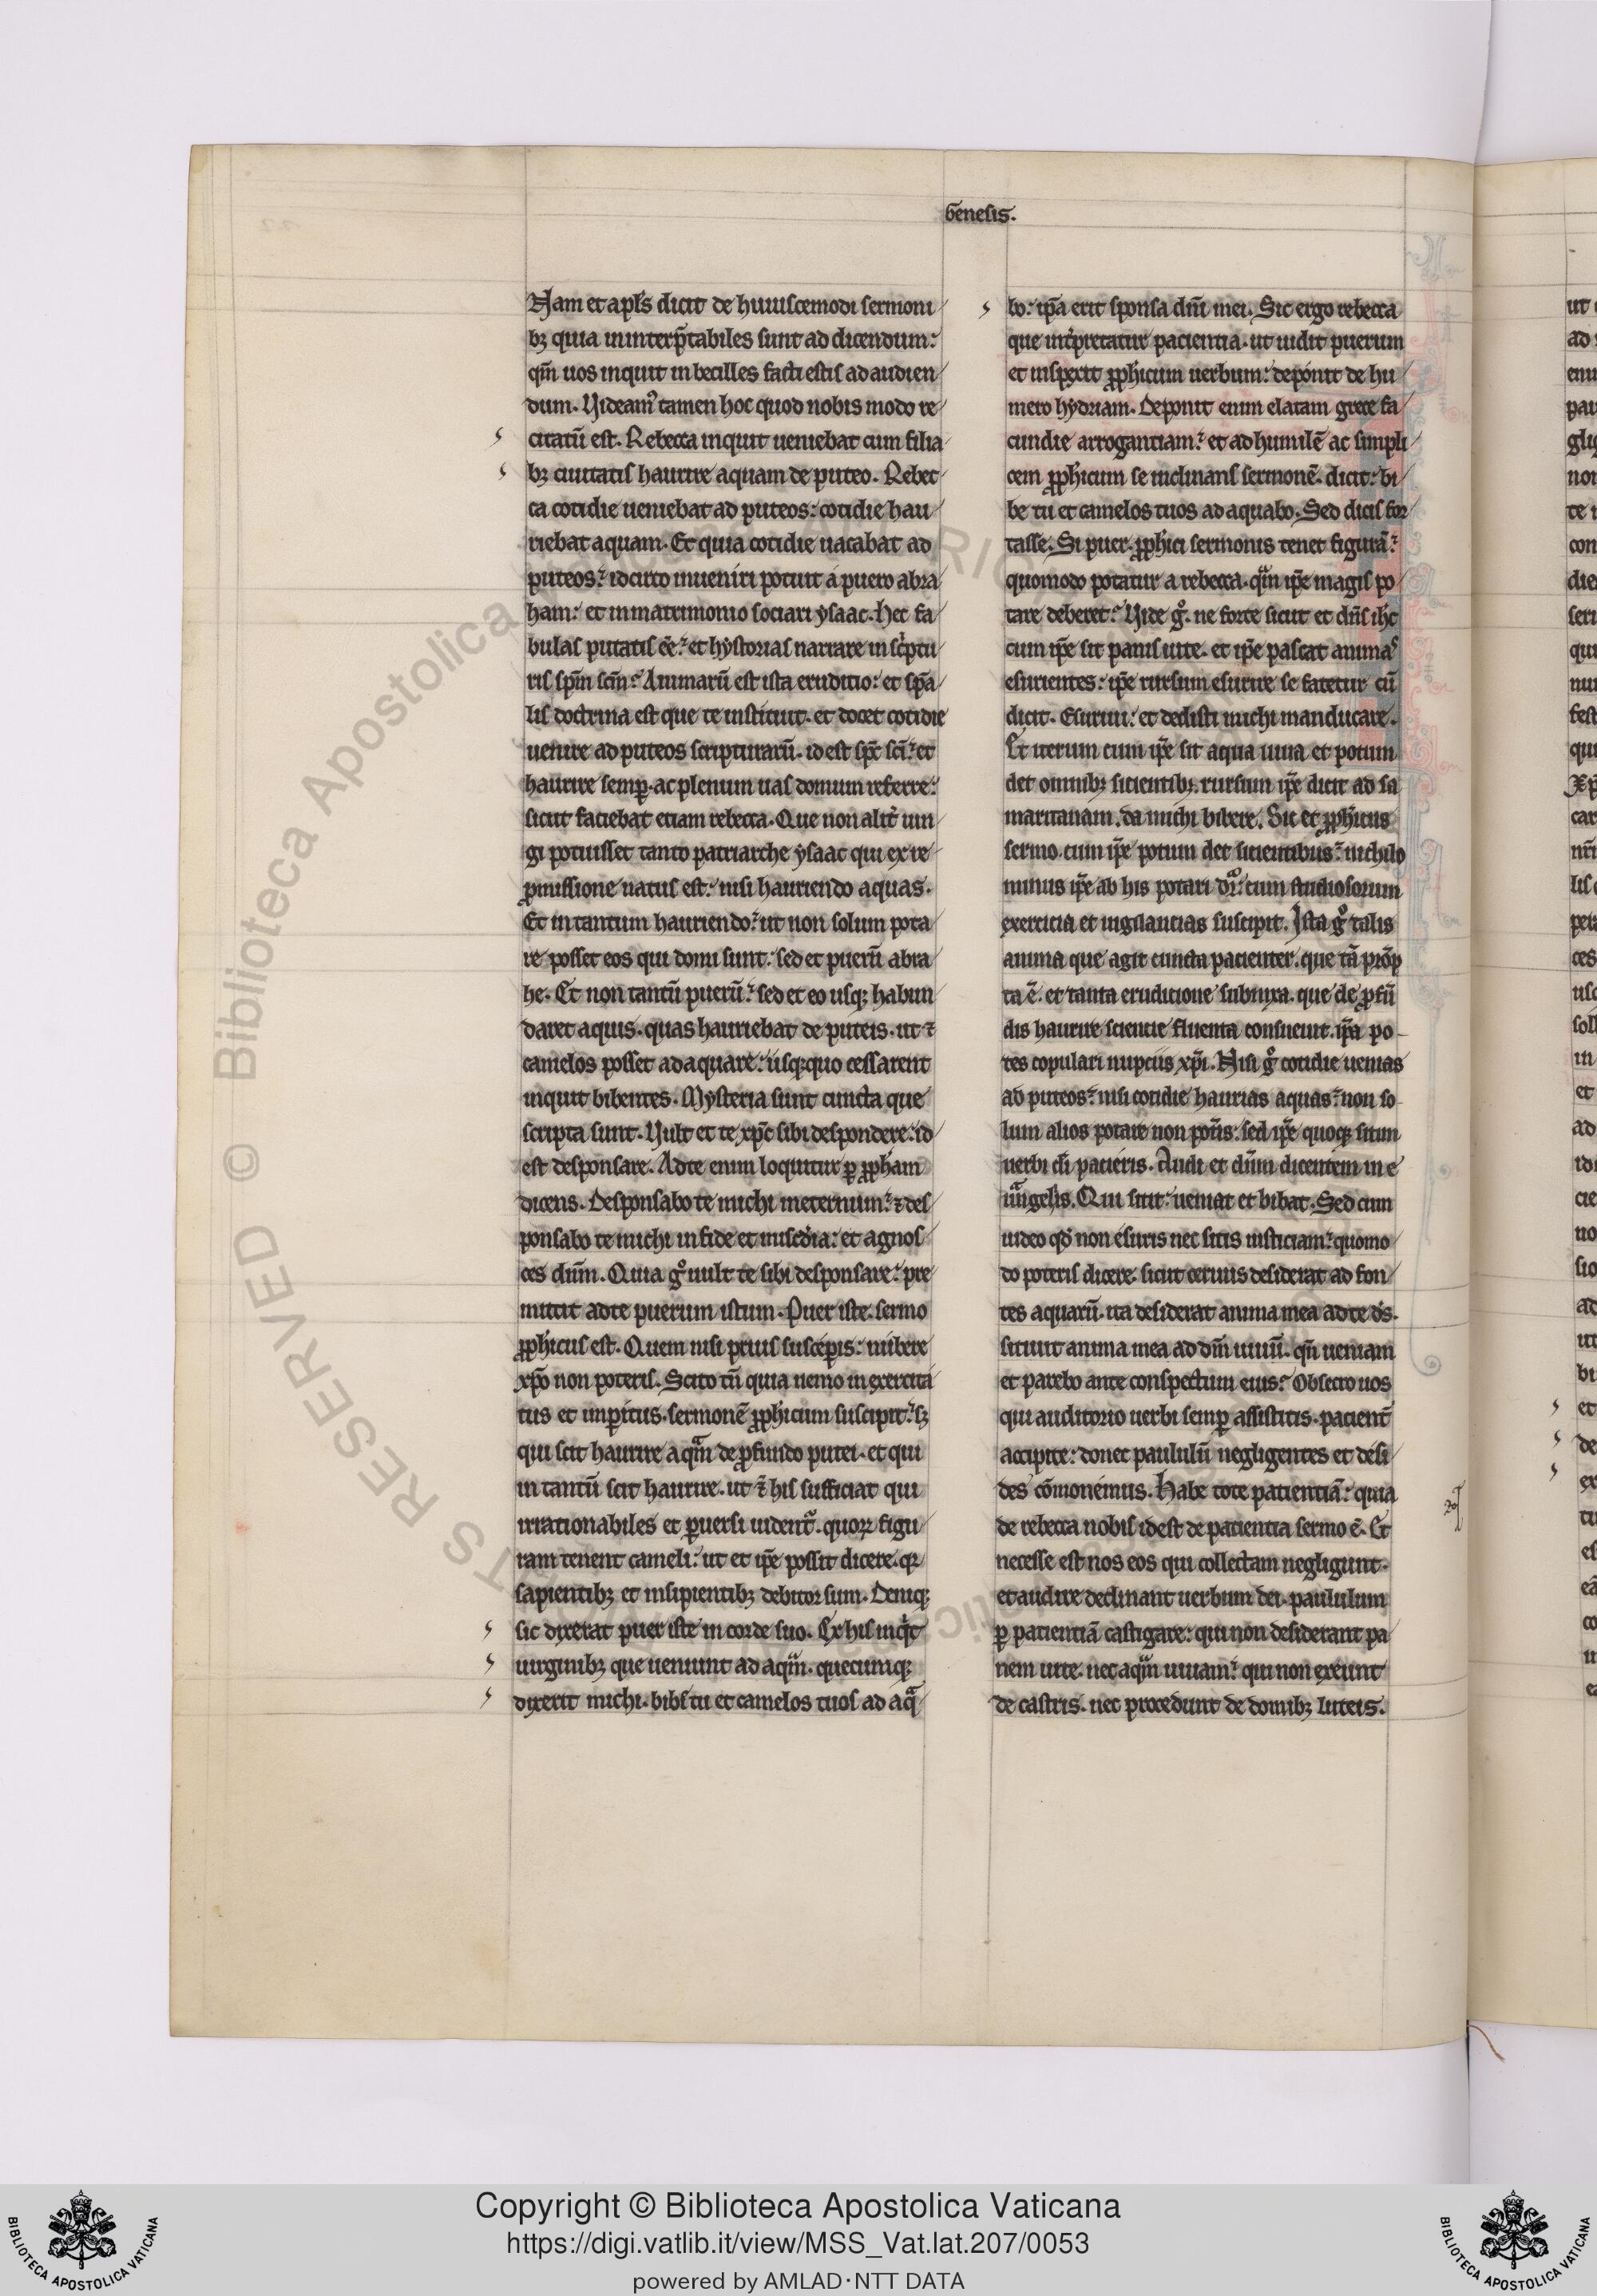 Genesis.
Nam et apl's dicit de huiuscemodi sermoni
bꝫ quia ininterp̄tabiles sunt ad dicendum:
qm̄ uos inquit inbecilles facti estis ad audien
dum. Videam᷒ tamen hoc quod nobis modo re
citatū est. Rebecca inquit ueniebat cum filia
bꝫ ciuitatis haurire aquam de puteo. Rebec
ca cotidie ueniebat ad puteos: cotidie hau
riebat aquam. Et quia cotidie uacabat ad
puteos: idcirco inueniri potuit a puero abra
ham: et in matrimonio sociari ysaac. Hec fa
bulas putatis eē: et hystorias narrare in sc'ptu
ris sp̄m sc̄m: Animarū est ista eruditio: et sp̄a
lis doctrina est que te instituit. et docet cotidie
uenire ad puteos scripturarū. id est sp̄c sc̄i: et
haurire semꝑ. ac plenum uas domum referre:
sicut faciebat etiam rebecca. Que non alit' iun
gi potuisset tanto patriarche ysaac qui ex re
ꝓmissione natus est: nisi hauriendo aquas.
Et in tantum hauriendo: ut non solum pota
re posset eos qui domi sunt: sed et puerū abra
he. Et non tantū puerū: sed et eo usqꝫ habun
daret aquis. quas hauriebat de puteis. ut ⁊
camelos posset adaquare: usqꝫquo cessarent
inquit bibentes. Mysteria sunt cuncta que
scripta sunt. Vult et te xp̄c sibi despondere: id
est desponsare. Ad te enim loquitur ꝑ ꝓph'am
dicens. Desponsabo te michi ineternum: ⁊ des
ponsabo te michi in fide et mis'cdia: et agnos
ces dn̄m. Quia gͦ uult te sibi desponsare: pre
mittit ad te puerum istum. Puer iste. sermo
ꝓph'icus est. Quem nisi prius susceperis: nubere
xp̄o non poteris. Scito tn̄ quia nemo inexercita
tus et inꝑitus. sermonē ꝓph'icum suscipit: sꝫ
qui scit haurire aqͣm de ꝓfundo putei. et qui
in tantū scit haurire. ut ⁊ his sufficiat qui
irrationabiles et ꝑuersi uident'. quoꝝ figu
ram tenent cameli: ut et ip̄e possit dicere. qꝛ
sapientibꝫ et insipientibꝫ debitor sum. Deniqꝫ
sic dixerat puer iste in corde suo. Ex his inqͥt
uirginibꝫ que ueniunt ad aqͣm. quecumqꝫ
dixerit michi. bibe tu et camelos tuos ad aqͣ
bo: ip̄a erit sponsa dn̄i mei. Sic ergo rebecca
que int'pretatur pacientia. ut uidit puerum
et inspexit ꝓph'icum uerbum: deponit de hu
mero hydriam. Deponit enim elatam grece fa
cundie arrogantiam: et ad humilē ac simpli
cem ꝓph'icum se inclinans sermonē. dicit: bi
be tu et camelos tuos adaquabo. Sed dicis for
tasse. Si puer. ꝓph'ici sermonis tenet figurā:
quomodo potatur a rebecca. qͣm ip̄e magis po
tare deberet: Vide gͦ. ne forte sicut et dn̄s ih̄c
cum ip̄e sit panis uite. et ip̄e pascat animas
esurientes: ip̄e rursum esurire se fatetur cū
dicit. Esuriui: et dedisti michi manducare.
Et iterum cum ip̄e sit aqua uiua et potum
det omnibꝫ sitientibꝫ. rursum ip̄e dicit ad sa
maritanam. da michi bibere. Sic et ꝓph'icus
sermo. cum ip̄e potum det sitientibus: nichilo
minus ip̄e ab his potari dr̄: cum studiosorum
exercitia et uigilantias suscipit. Ista gͦ talis
anima que agit cuncta pacienter. que tā prōp
ta ē. et tanta eruditione subnixa. que de ꝓfū
dis haurire sciencie fluenta consueuit. ip̄a po
tes copulari nuptiis xp̄i. Nisi gͦ cotidie uenias
ad puteos: nisi cotidie haurias aquas: non so
lum alios potare non pot'is: sed ip̄e quoqꝫ sitim
uerbi dī pacieris. Audi et dn̄m dicentem in e
uͣngelis. Qui sitit: ueniat et bibat. Sed cum
uideo qd' non esuris nec sitis iusticiam: quomo
do poteris dicere. sicut ceruus desiderat ad fon
tes aquarū. ita desiderat anima mea ad te ds̄.
sitiuit anima mea ad dm̄ uiuū. qn̄ ueniam
et parebo ante conspectum eius: Obsecro uos
qui auditorio uerbi semꝑ assistitis. pacient'
accipite: donec paululū negligentes et desi
des cōmonemus. Habe tote patientiā: quia
de rebecca nobis id est de patientia sermo ē. Et
necesse est nos eos qui collectam negligunt.
et audire declinant uerbum dei. paululum
ꝑ patientiā castigare: qui non desiderant pa
nem uite. nec aqͣm uiuam: qui non exeunt
de castris. nec procedunt de domibꝫ luteis.
Copyright © Biblioteca Apostolica Vaticana
https://digi.vatlib.it/view/MSS_Vat.lat.207/0053
powered by AMLAD·NTT DATA